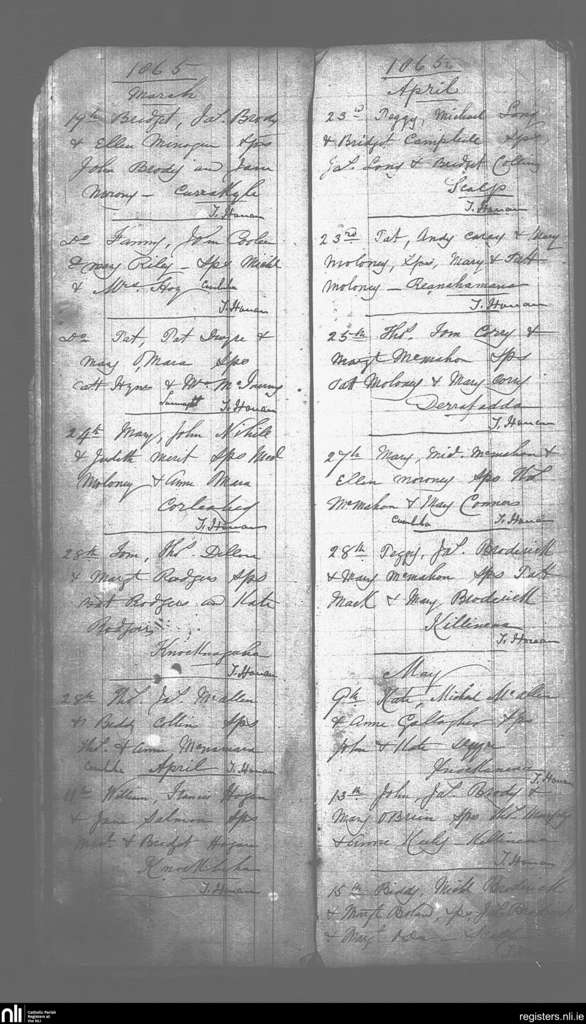 1865
March
19th Bridget, Jas. Brody
& Ellen Minogue Sps
John Brody and Jane
Morony - Currakyle
T. Honan
Do Fanny, John
& Mary Riley - Sps Michl
& Mrs. Hog
T. Honan
Do Pat, Pat Dwyre &
Mary OMara Sps
Catt Hynes & Wm McInerny
T. Honan
24th Mary, John Nihill
& Judith Sps Med
Moloney & Anne Mara
Corleabeg
T. Honan
28th Tom, Thos. Dillon
& Margt Rodgers Sps
Rodgers and Kate
Rodgers
Knocknagaha
T. Honan
28th Thos. Jas. McAllen
& Biddy Collin Sps
Thos. & Anne McNamara
April T. Honan
11th William, Francis Hogan
& Jane Salmon Sps
& Bridget Hogan
T. Honan
1865
April
23rd Peggy, Michael Long
& Bridget Campbell Sps
Jas. Long & Bridget Collins
Scalp
T. Honan
23rd Pat, Andy Carey & Mary
Moloney, Sps, Mary & Patt
Moloney - Reanahamana
T. Honan
25th Thos. Tom Cory &
Margt McMahon Sps
Pat Moloney & Mary Cory
Derrafadda
T. Honan
27th Mary, Mid. McMahon &
Ellen Morony Sps Thos.
McMahon & May Connors
T. Honan
28th Peggy, Jas. Broderick
& Mary McMahon Sps Patt
Mack & Mary Broderick
Killinena
T. Honan
May
9th Kate, Michael McAllen
& Anne Gallagher Sps
John & Kate
T. Honan
13th John, Jas. Brody &
Mary OBrien Sps Thos. Murphy
& Anne Healy - Killinena
T. Honan
15th Biddy, Michl Broderick
& Margt Boland, Sps, Jas. Broderick
& Margt
nli
Catholic Parish
Registers at
the NLI
registers.nli.ie